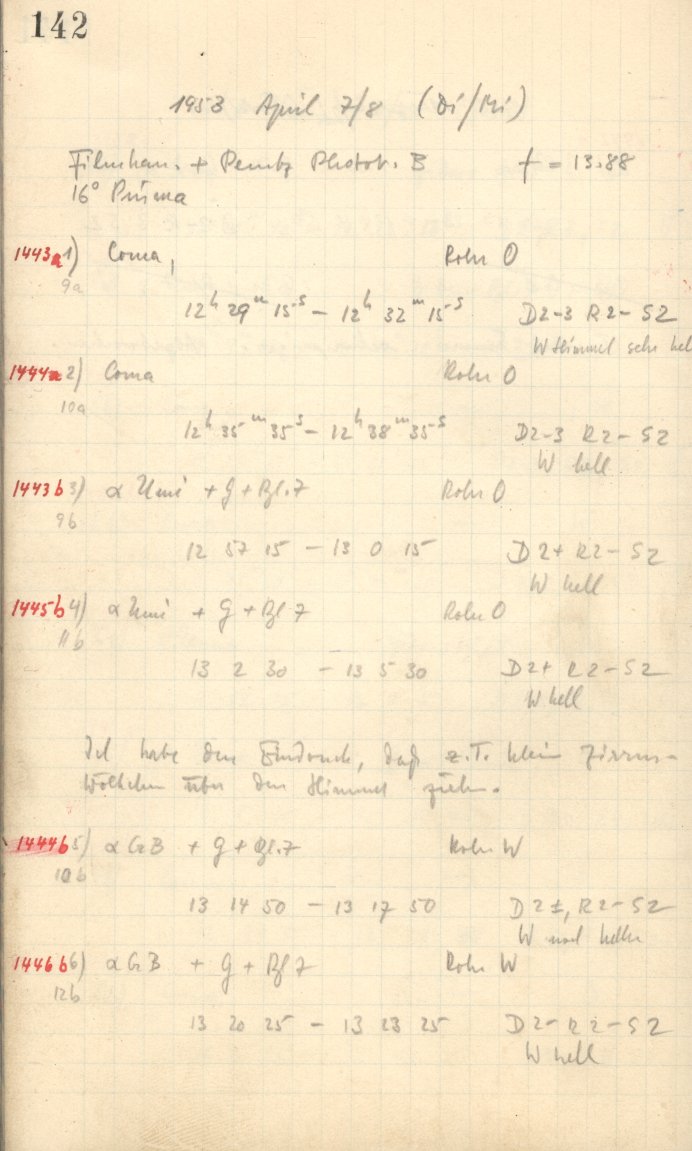 142
1953 April 7/8 (Di/Mi)
Filmhan. + Perutz Photot. B f = 13.88
16° Prisma
1443a 1) Coma, Rohr O
9a
12h 29m 15s – 12h 32m 15s D2-3 R2- S2
W Himmel sehr hell
1444a 2) Coma Rohr O
10a
12h 35m 35s – 12h 38m 35s D2-3 R2- S2
W hell
1443b 3) α Umi + G + Bl. 7 Rohr O
9b
12 57 15 – 13 0 15 D2+ R2- S2
W hell
1445b 4) α Umi + G + Bl 7 Rohr O
11b
13 2 30 – 13 5 30 D2+ R2- S2
W hell
Ich habe den Eindruck, daß z.T. kleine Zirrus-
wölkchen über den Himmel ziehen.
1444b 5) α CrB + G + Bl. 7 Rohr W
10b
13 14 50 – 13 17 50 D2±, R2- S2
W noch heller
1446b 6) α CrB + G + Bl 7 Rohr W
12b
13 20 25 – 13 23 25 D2- R2- S2
W hell